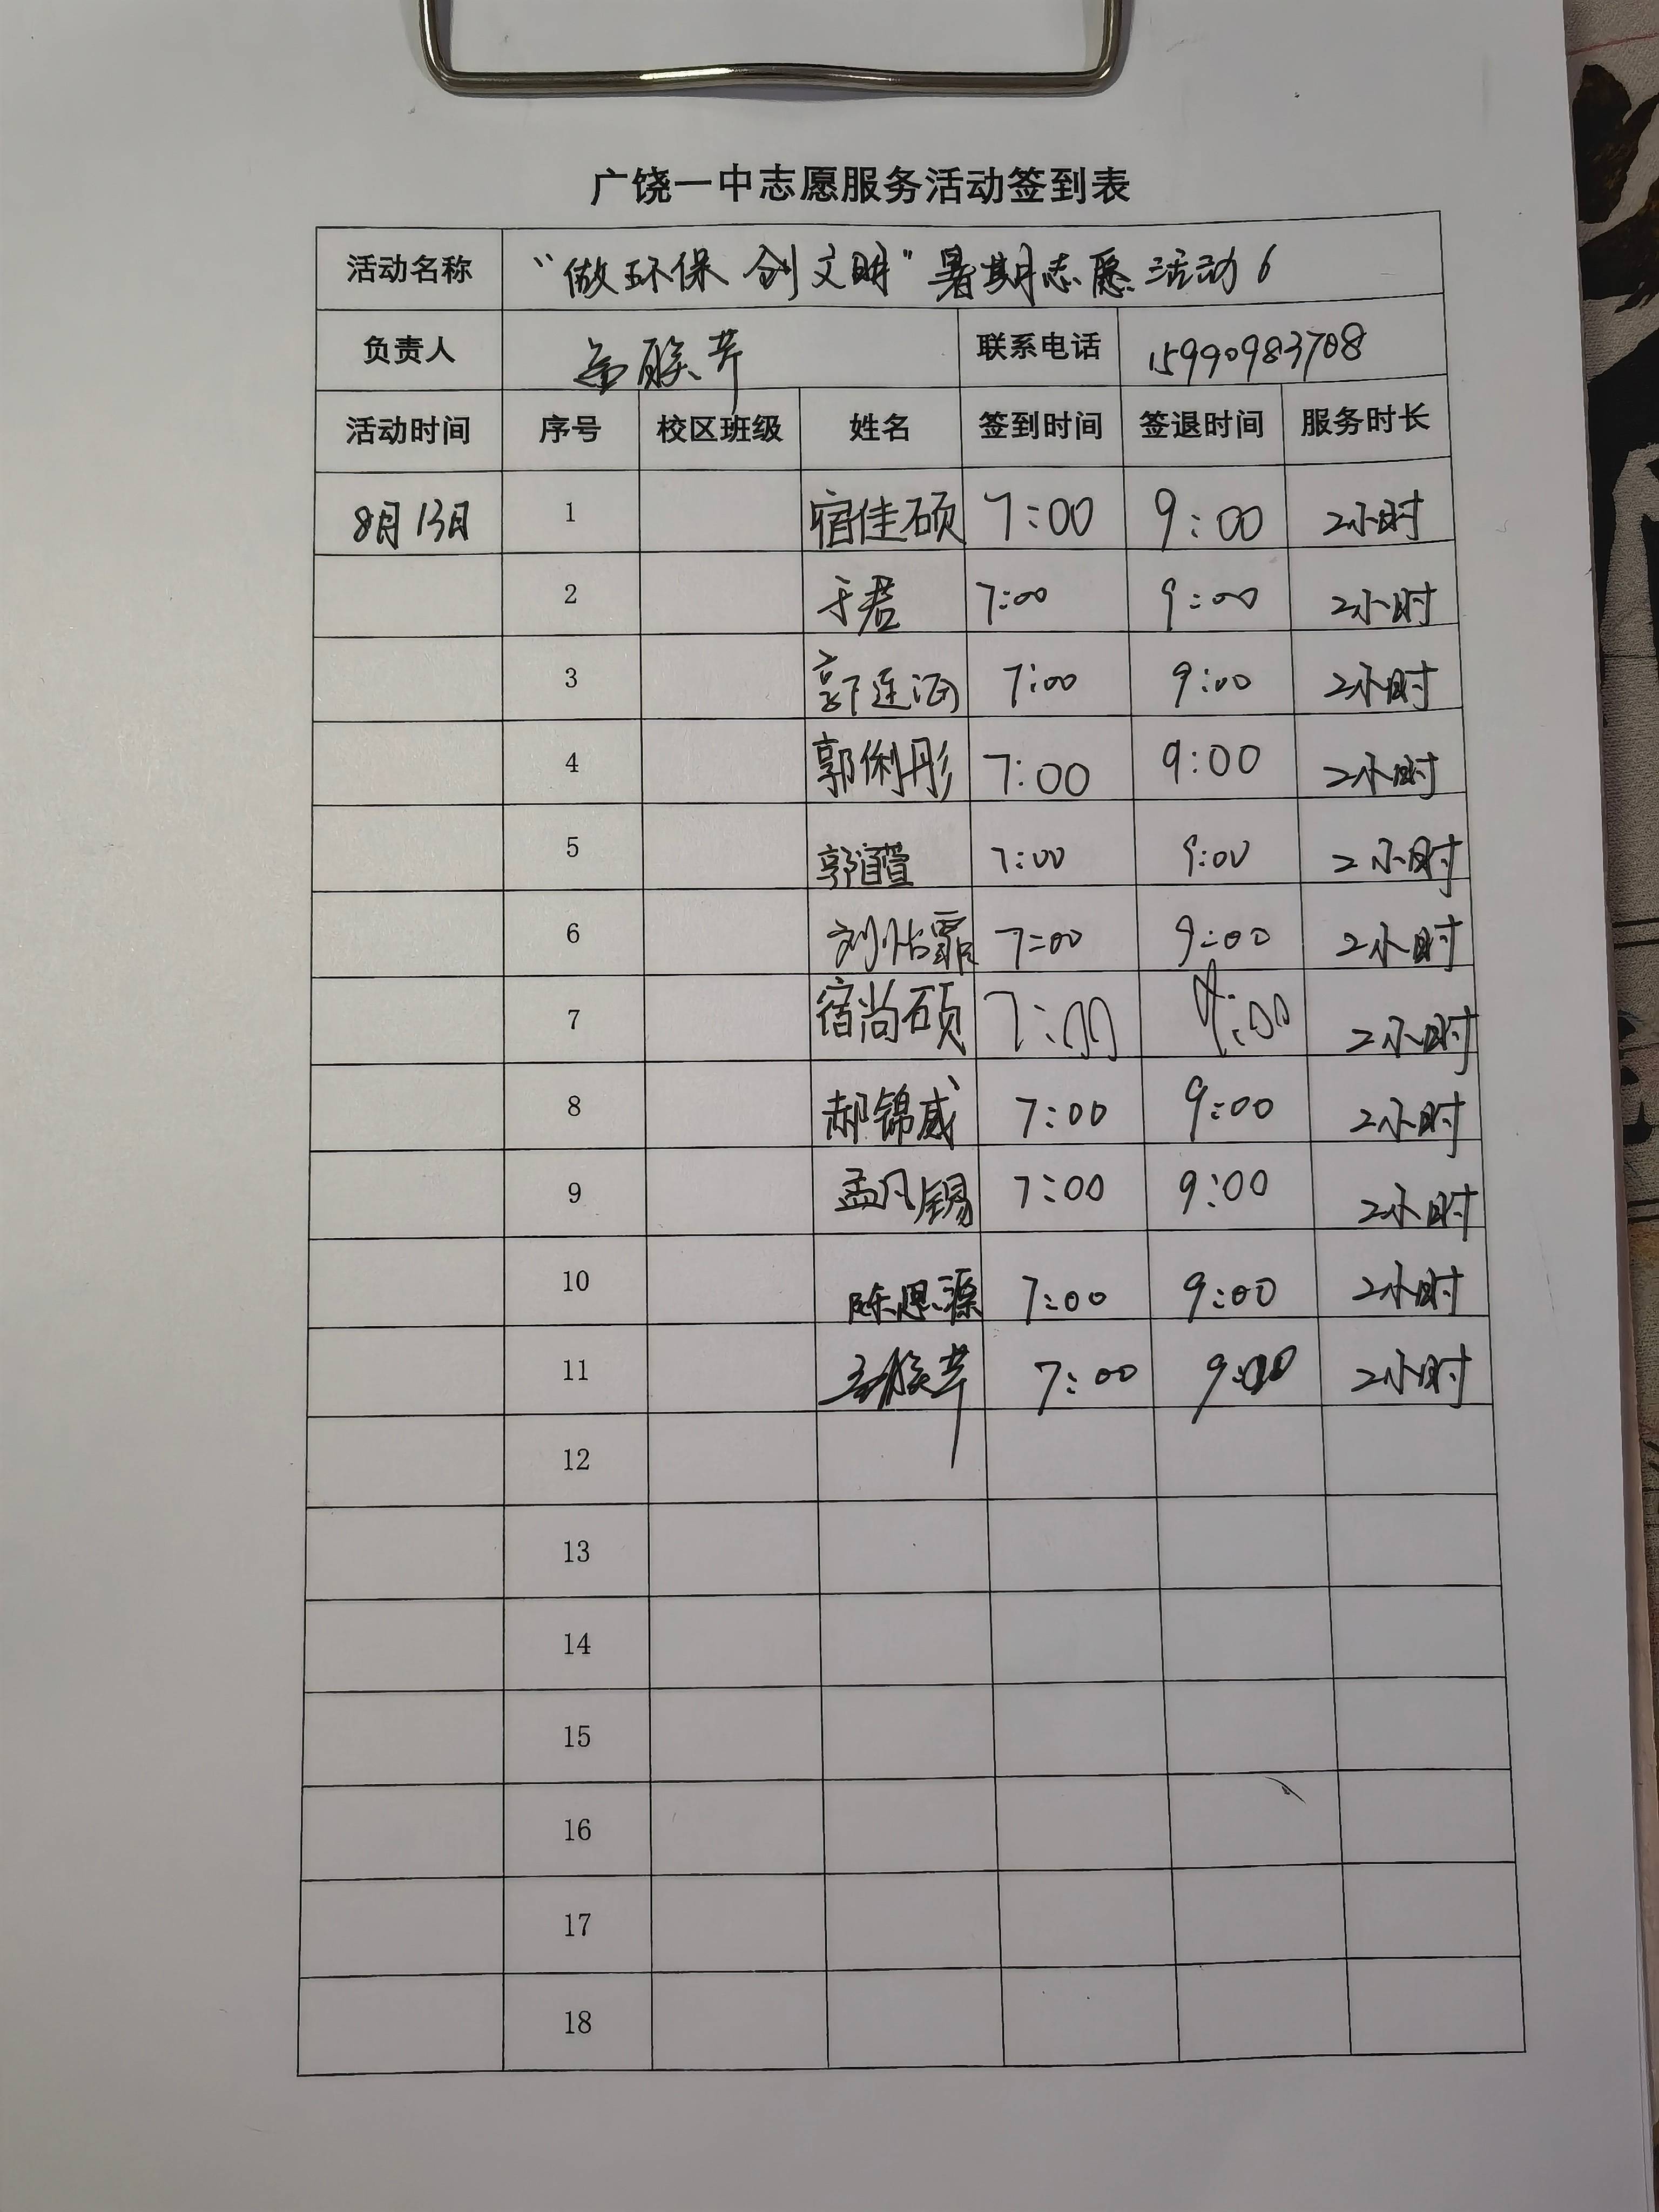 广饶一中志愿服务活动签到表
活动名称 “做环保 创文明”暑期志愿活动6
负责人 联系电话 15990983708
活动时间 序号 校区班级 姓名 签到时间 签退时间 服务时长
8月13日 1 宿佳硕 7:00 9:00 2小时
2 于君 7:00 9:00 2小时
3 郭连涵 7:00 9:00 2小时
4 郭俐彤 7:00 9:00 2小时
5 7:00 9:00 2小时
6 刘怡霏 7:00 9:00 2小时
7 宿尚硕 7:00 9:00 2小时
8 郝锦威 7:00 9:00 2小时
9 孟凡锡 7:00 9:00 2小时
10 陈思源 7:00 9:00 2小时
11 7:00 9:00 2小时
12
13
14
15
16
17
18